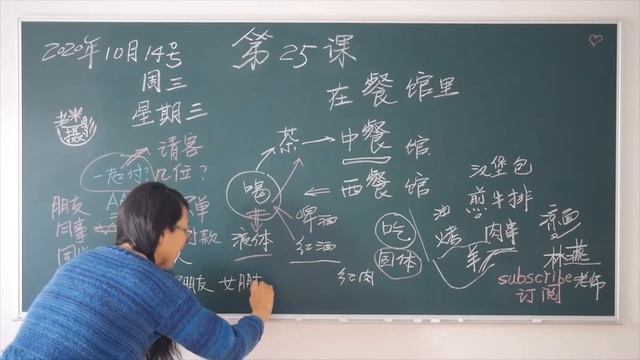 2020年10月14号
第25课
周三
星期三
在餐馆里
老米
摄影
请客
一起付?
几位?
茶
中餐馆
西餐馆
喝
液体
啤酒
红酒
红肉
吃
固体
汉堡包
煎牛排
油
烤
肉串
羊
凉面
林燕
老师
subscribe
订阅
朋友
同事
AA
单
款
人
朋友
女朋